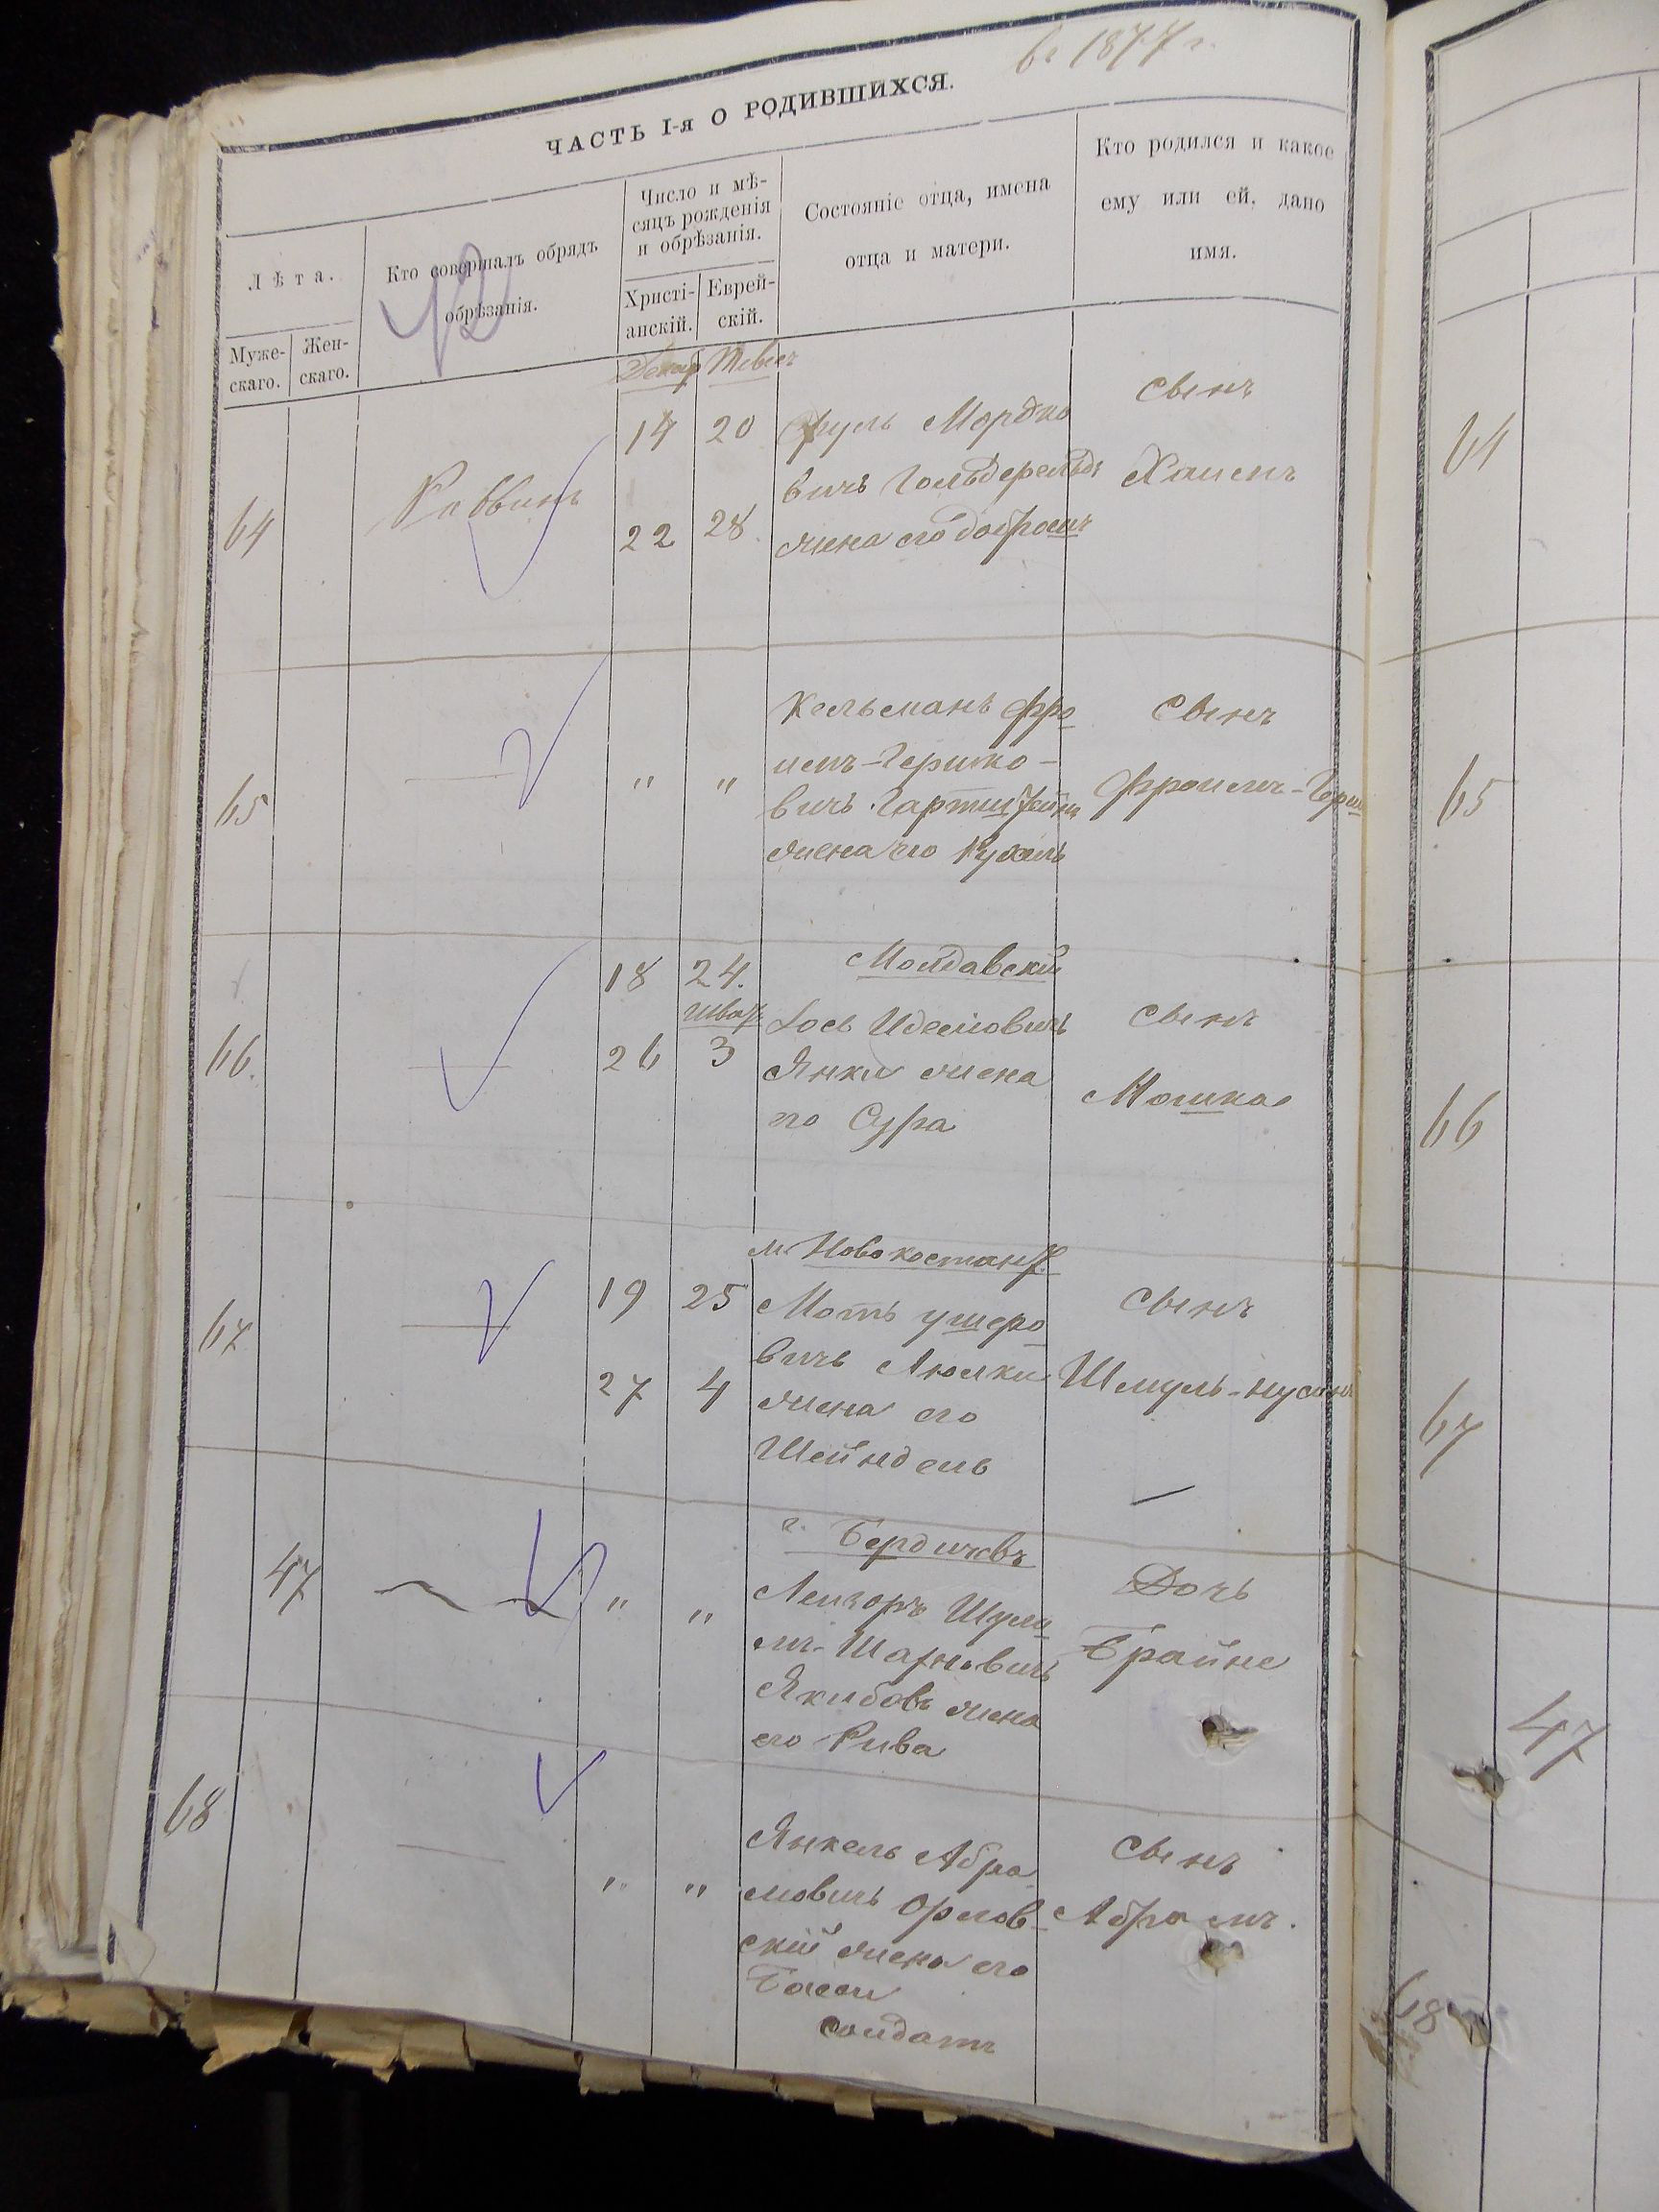 въ 1877 г.
ЧАСТЬ I-я О РОДИВШИХСЯ.
Лѣта.
Муже-
скаго.
Жен-
скаго.
Кто совершалъ обрядъ
обрѣзанія.
Число и мѣ-
сяцъ рожденія
и обрѣзанія.
Христі-
анскій.
Еврей-
скій.
Состояніе отца, имена
отца и матери.
Кто родился и какое
ему или ей, дано
имя.
42
Декаб Тевесъ
64
Раввинъ
14 20
22 28
Сруль Мордко
вичъ Гольдерельдъ
жена его
сынъ
Хаимъ
64
65
— " "
Кельманъ Фро
имъ-Гершко-
вичъ
жена его Рухель
сынъ
Фроимъ-Герш
65
66.
—
18 24.
Шват
26 3
Молдавскій
Іось
Янки жена
его Сура
сынъ
Мошка
66
67
—
19 25
27 4
м. Новоконстант.
Моть Ушеро
вичъ Люлки
жена его
Шейндель
сынъ
Шмуль-Нусонъ
67
47
— " "
г. Бердичевъ
Лейзоръ Шули
мъ-Шарновичъ
Якубовъ жена
его Рива
Дочь
Брайне
47
68
— " "
Янкель Абра
мовичъ Орлов-
скій жена его
Баси
солдатъ
сынъ
Абрамъ.
68